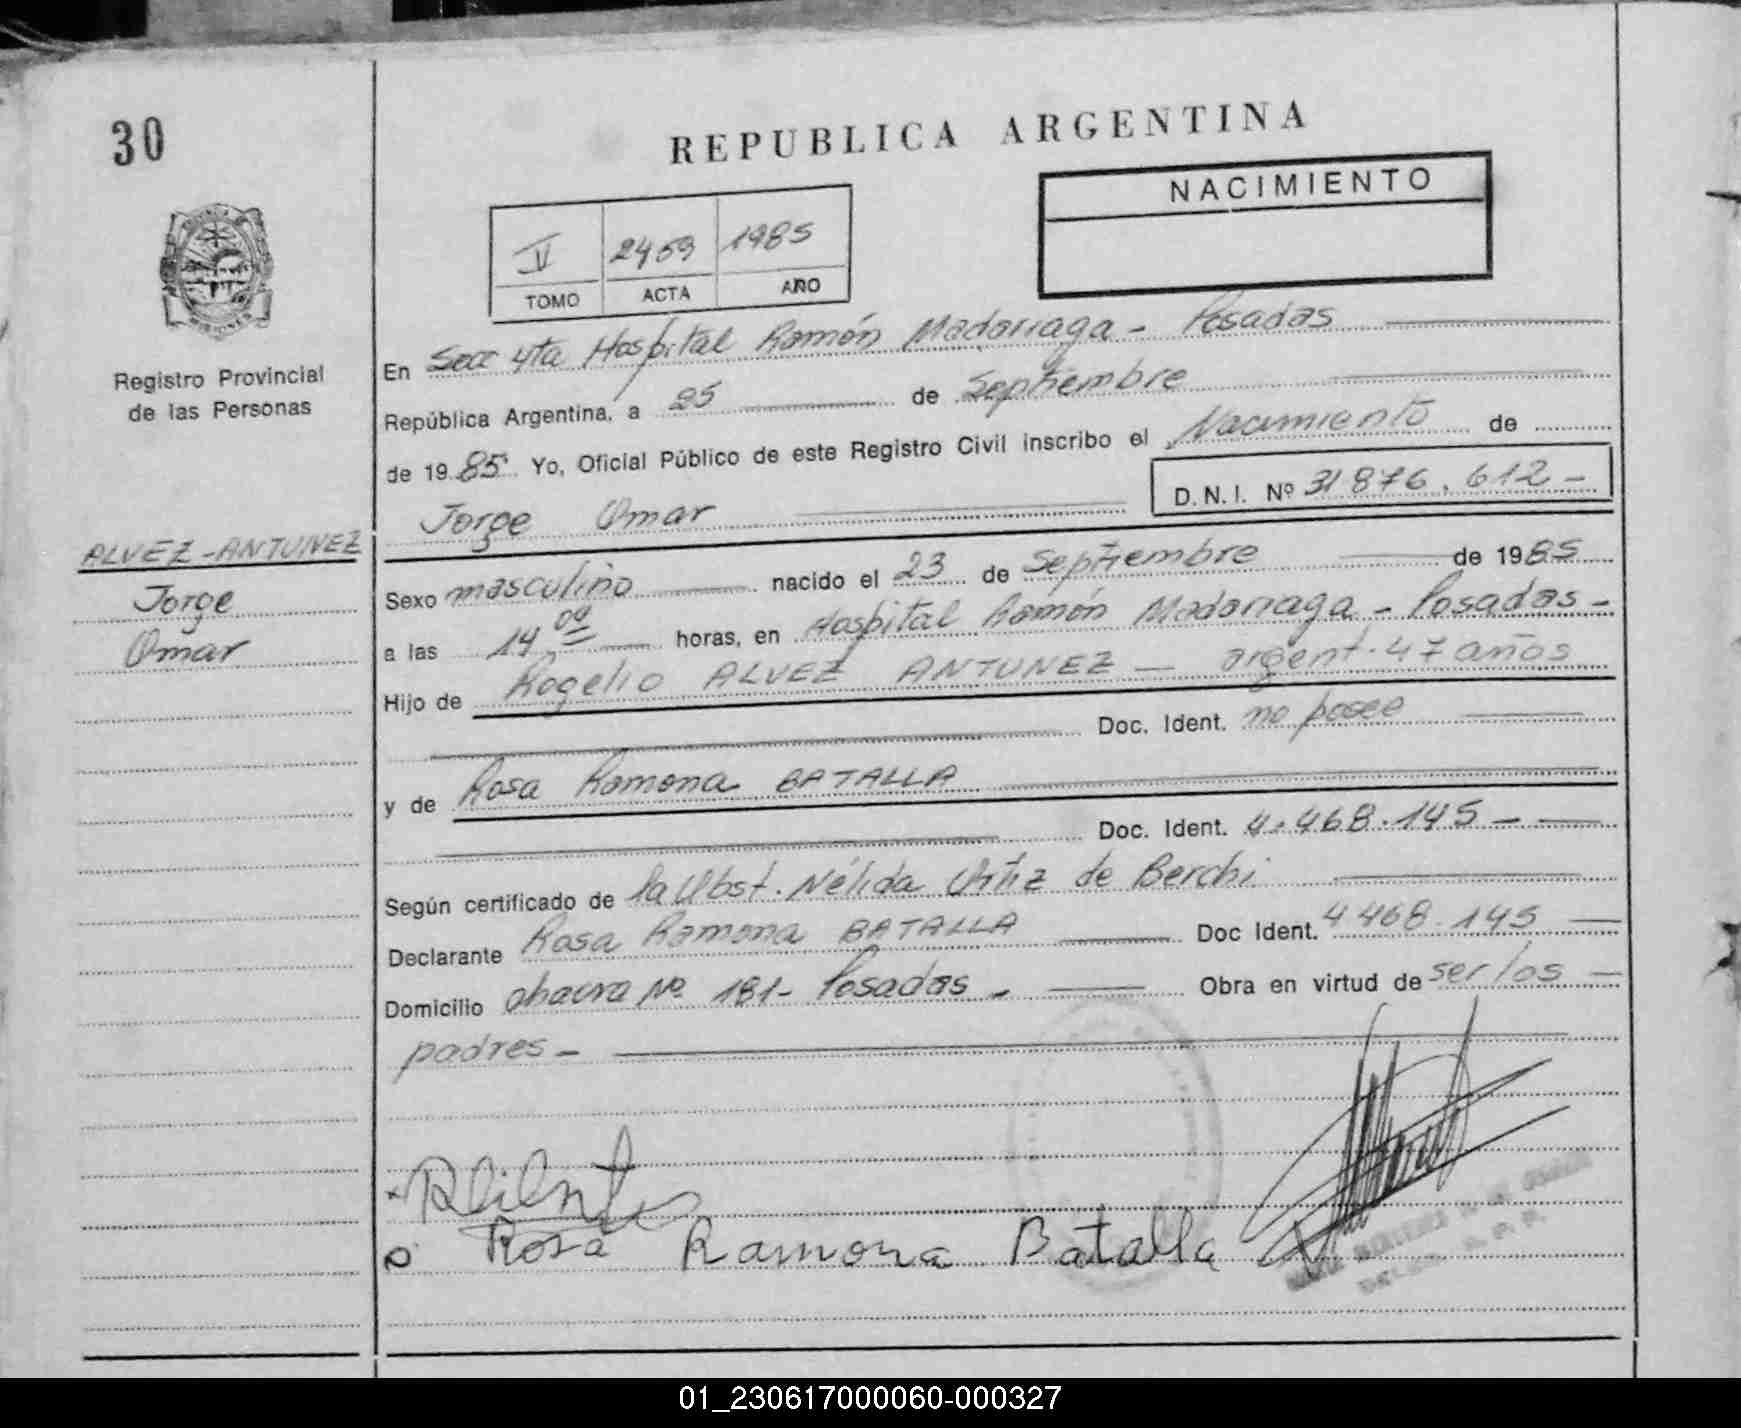 30
REPUBLICA ARGENTINA
NACIMIENTO
V 2459 1985
TOMO ACTA AÑO
Registro Provincial
de las Personas
En Secc 4ta Hospital Ramón Madariaga - Posadas
República Argentina, a 25 de Septiembre
de 1985 Yo, Oficial Público de este Registro Civil inscribo el Nacimiento de
D.N.I. Nº 31876.612-
Jorge Omar
ALVEZ-ANTUNEZ
Jorge
Omar
Sexo masculino nacido el 23 de Septiembre de 1985
a las 14 00 horas, en Hospital Ramón Madariaga - Posadas -
Hijo de Rogelio ALVEZ ANTUNEZ - argent. 47 años
Doc. Ident. no posee
y de Rosa Ramona BATALLA
Doc. Ident. 4.468.145 -
Según certificado de la Obst. Nélida Ortiz de Berchi
Declarante Rosa Ramona BATALLA Doc Ident. 4468.145
Domicilio chacra Nº 181- Posadas - Obra en virtud de ser los
padres -
Rosa Ramona Batalla
01_230617000060-000327